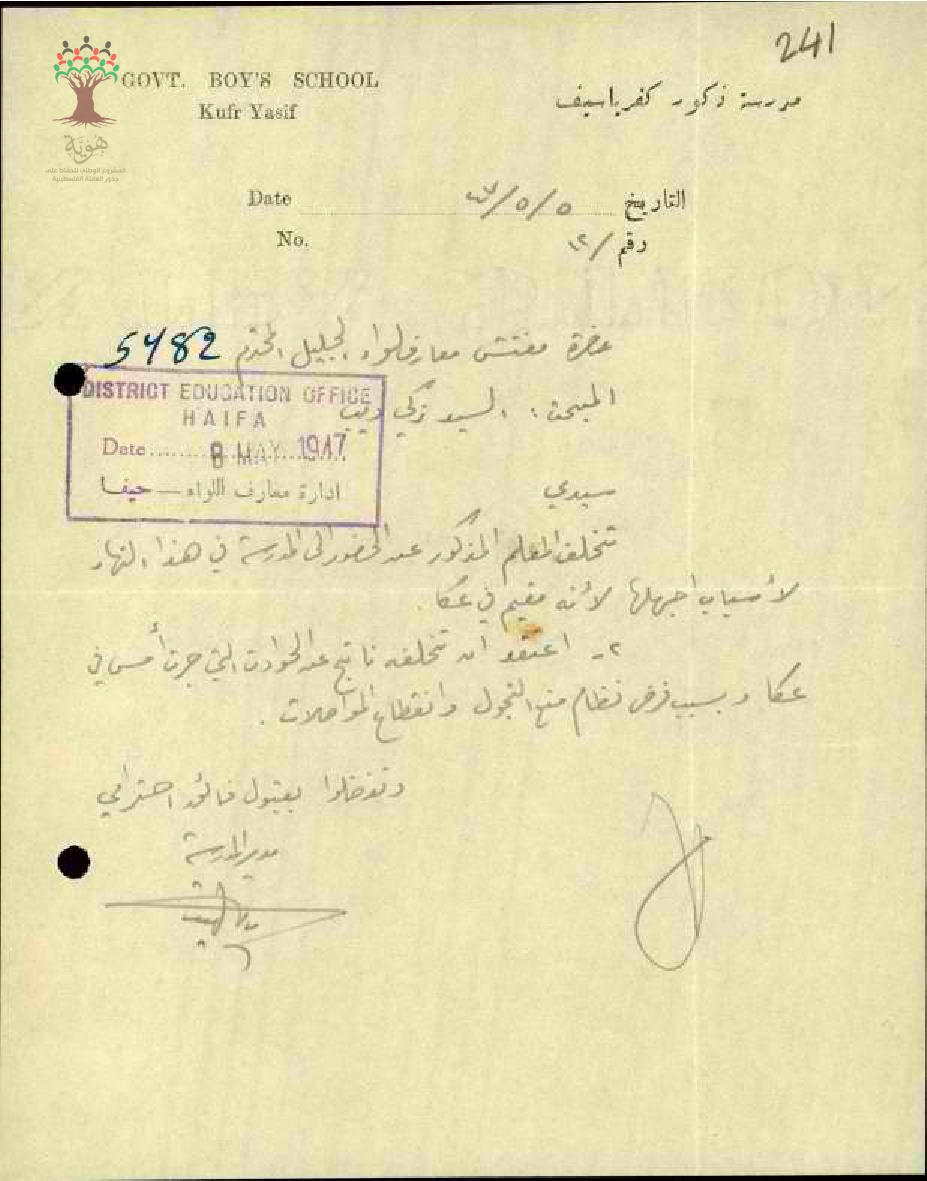 241
GOVT. BOY'S SCHOOL
Kufr Yasif
مدرسة ذكور كفرياسيف
هوية
المشروع الوطني للحفاظ على
جذور العائلة الفلسطينية
Date ٤٧/٥/٥ التاريخ
No. رقم /١٢
حضرة مفتش معارف لواء الجليل المحترم
5482
المبحث: السيد زكي ديب
DISTRICT EDUCATION OFFICE
HAIFA
Date 8 MAY 1947
ادارة معارف اللواء — حيفا
سيدي
تخلف المعلم المذكور عن الحضور الى المدرسة في هذا النهار
لأسباب اجهلها لأنه مقيم في عكا.
٢- اعتقد ان تخلفه ناتج عن الحوادث التي جرت أمس في
عكا وبسبب فرض نظام منع التجول وانقطاع المواصلات.
وتفضلوا بقبول فائق احترامي
مدير المدرسة